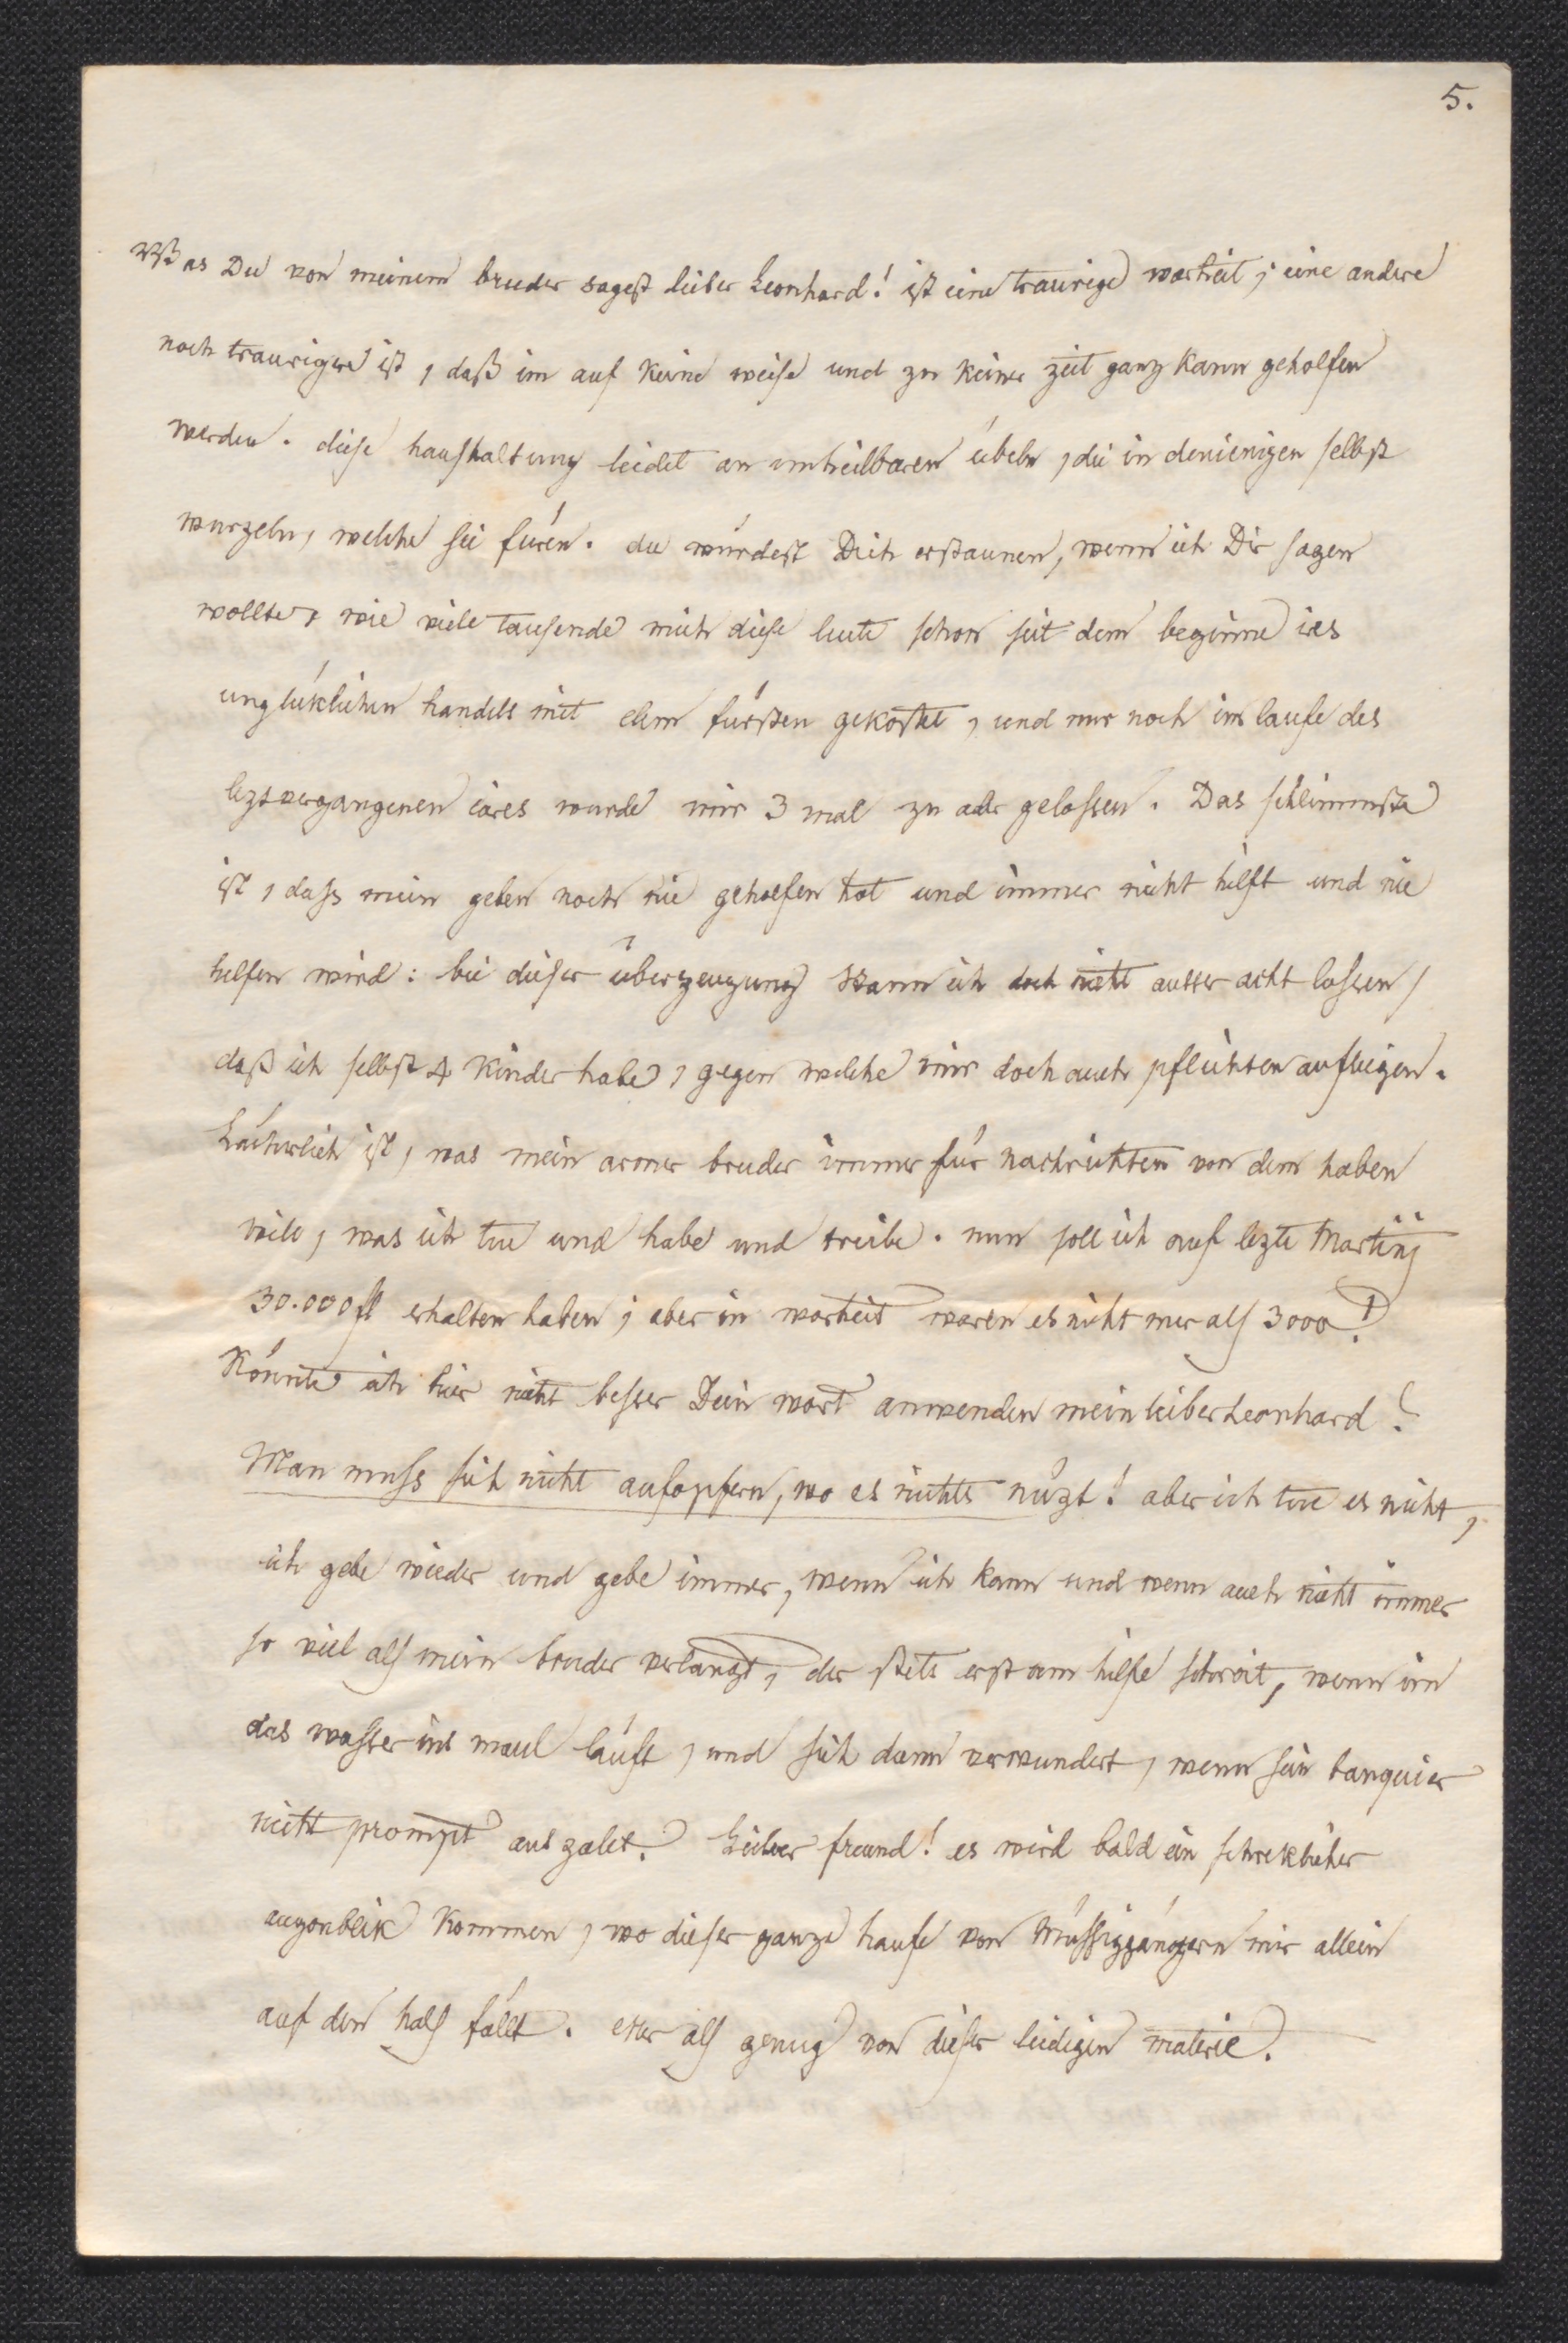 5.
Was Du von meinem bruder sagest lieber Leonhard! ist eine traurige warheit; eine andere
noch traurigere ist, daß im auf keine weise und zu keiner zeit ganz kann geholfen
werden. diese haushaltung leidet an unheilbaren übeln, die in denienigen selbst
wurzeln, welche sie füren. du würdest Dich erstaunen, wenn ich Dir sagen
wollte, wie viele tausende mich diese leute schon seit dem beginne ires
unglüklichen handels mit dem fürsten gekostet, und nur noch im laufe des
leztvergangenen iares wurde mir 3 mal zu ader gelassen. Das schlimmste
ist, dass mein geben noch nie geholfen hat und immer nicht hilft und nie
helfen wird: bei dieser überzeugung kann ich doch nicht ausser acht lassen,
daß ich selbst 4 kinder habe, gegen welche mir doch auch pflichten aufliegen.
Lächerlich ist, was mein armer bruder immer für nachrichten von dem haben
will, was ich tue und habe und treibe. nun soll ich auf lezte Martinj
30.000 fl erhalten haben; aber in warheit waren es nicht mer als 3000!
Könnte ich hier nicht besser Dein wort anwenden mein lieber Leonhard?
Man muss sich nicht aufopfern, wo es nichts nüzt! aber ich tue es nicht,
ich gebe wieder und gebe immer, wenn ich kann und wenn auch nicht immer
so viel als mein bruder verlangt, der stets erst um hilfe schreit, wenn im
das wasser ins maul läuft, und sich dann verwundert, wenn sein banquier
nicht prompt auszalet. Lieber freund! es wird bald ein schreklicher
augenblik kommen, wo dieser ganze haufe von Müssiggängern mir allein
auf den hals fällt. mer als genug von dieser leidigen materie.